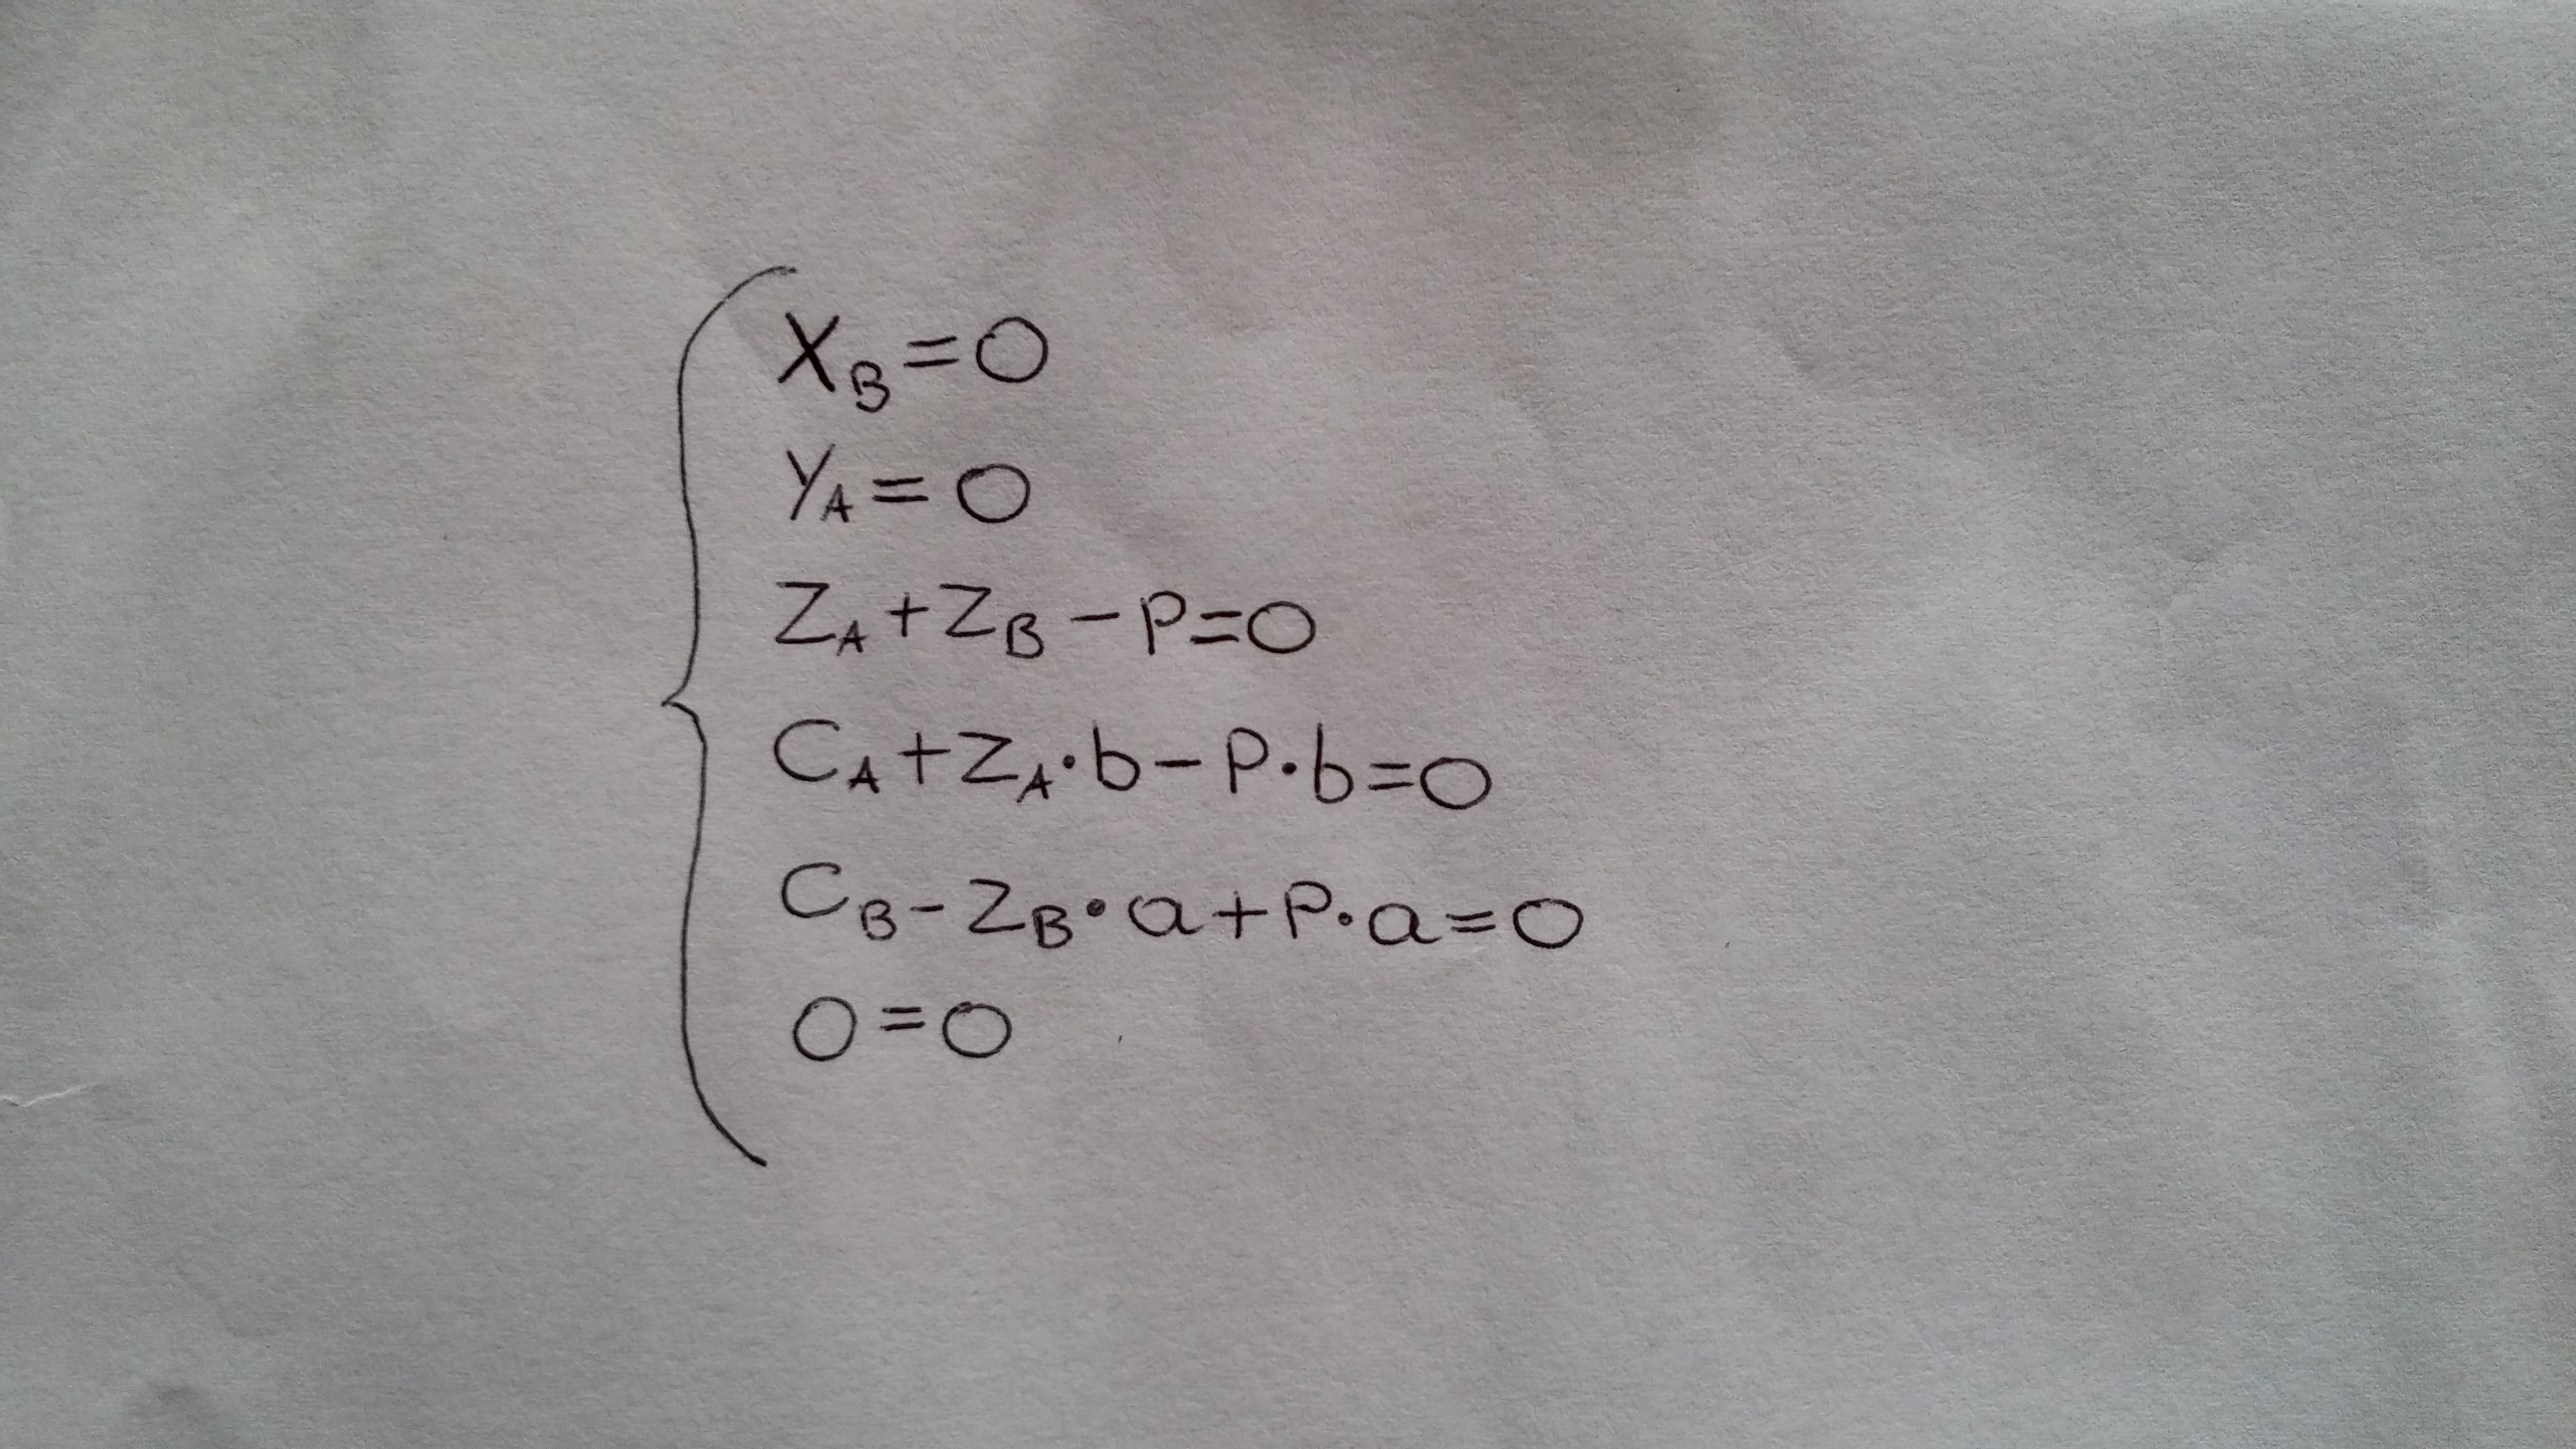 X_B=0
Y_A=0
Z_A+Z_B-P=0
C_A+Z_A·b-P·b=0
C_B-Z_B·a+P·a=0
0=0